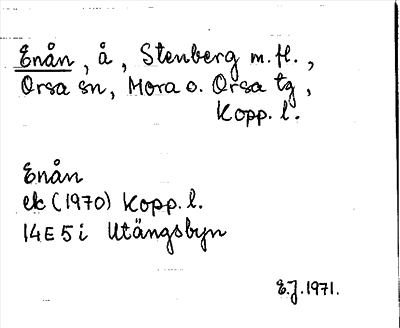 Enån, å, Stenberg m. fl.,
Orsa sn, Mora o. Orsa tg,
Kopp. l.
Enån
ek (1970) Kopp. l.
14E5i Utängsbyn
E.J. 1971.